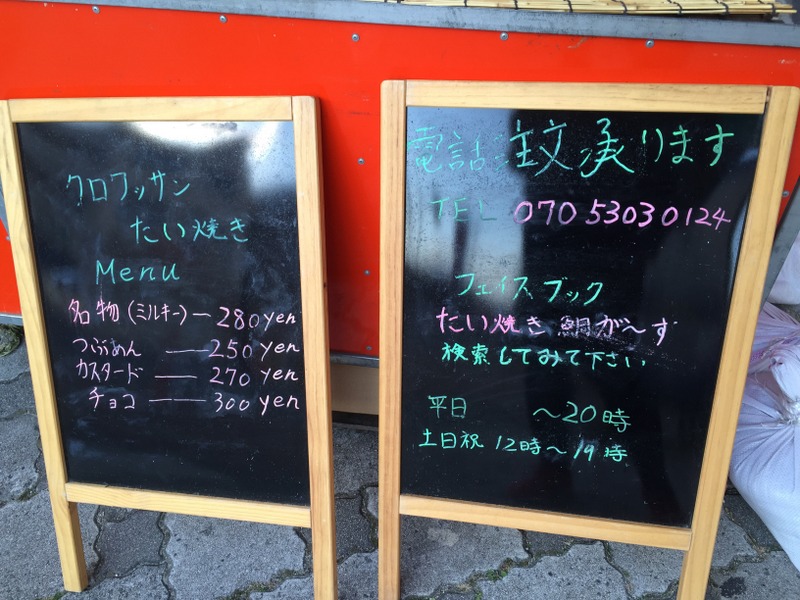 クロワッサン
たい焼き
Menu
名物(ミルキー)ー280yen
つぶあん ―― 250yen
カスタード ―― 270 yen
チョコ ―― 300 yen
電話注文承ります
TEL 070 5303 0124
フェイスブック
たい焼き 鯛が〜す
検索してみて下さい
平日 〜20時
土日祝 12時〜19時